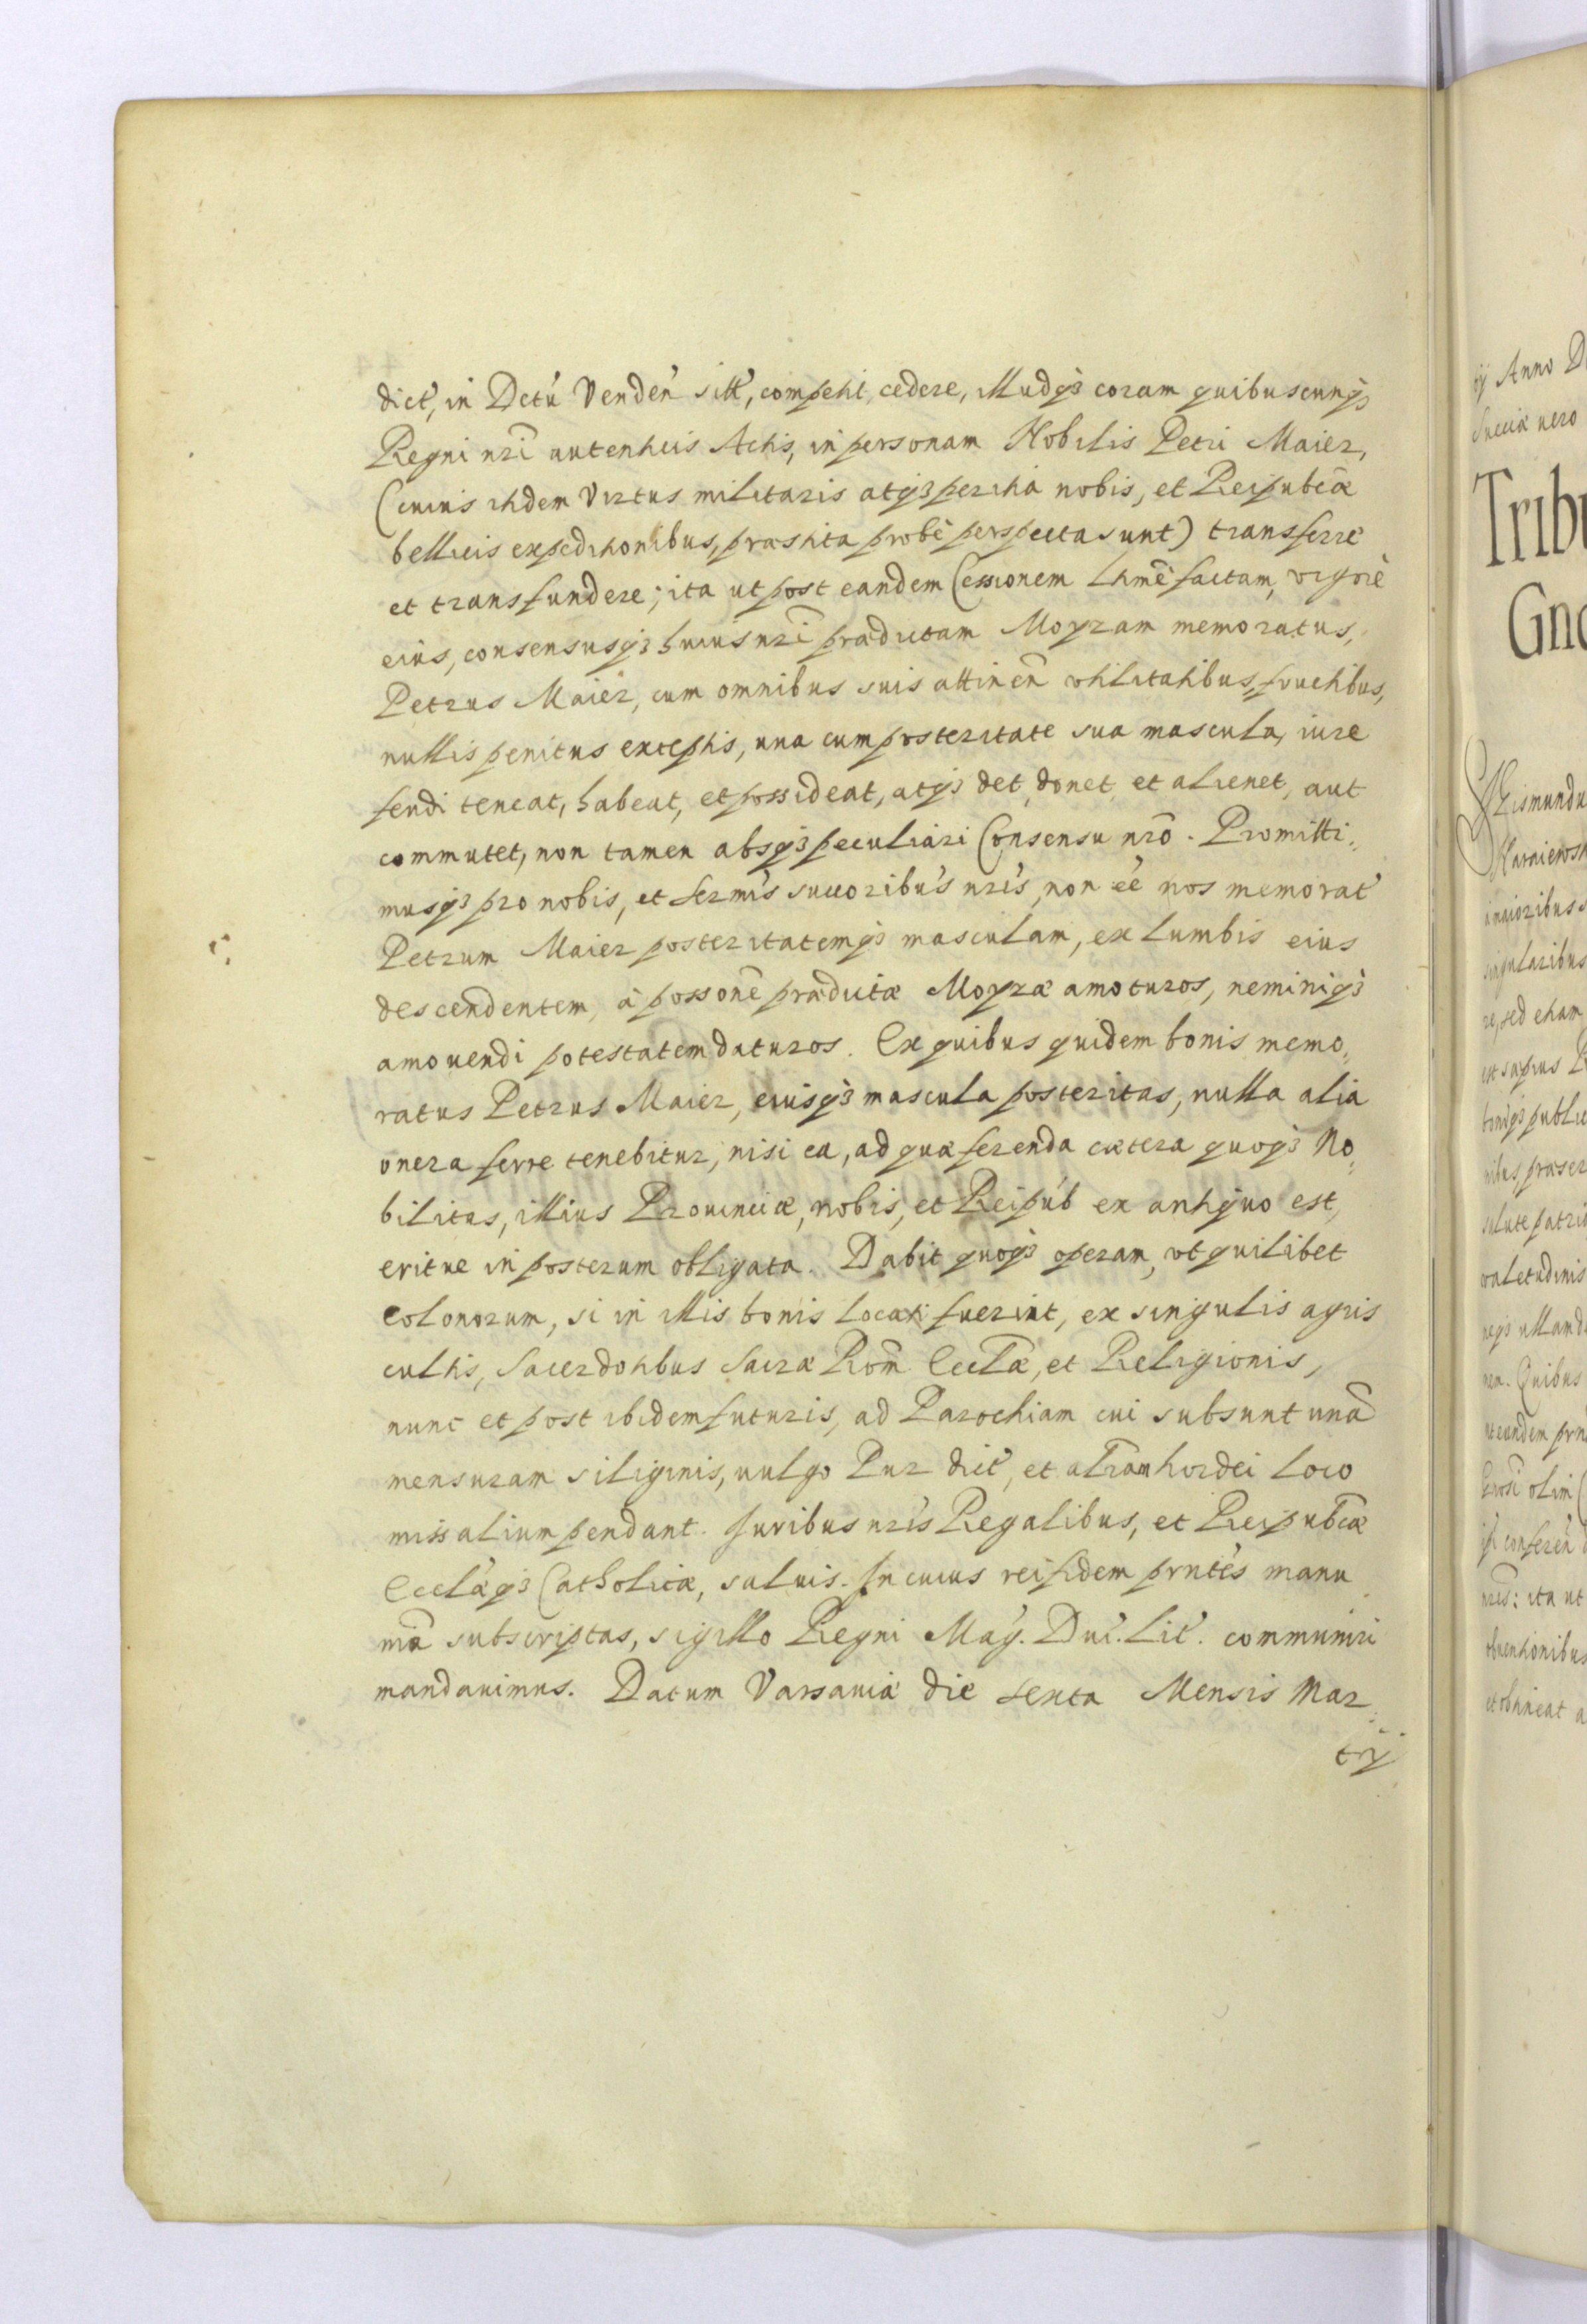 dict', in Dctu' Venden' sitt', competit, cedere, illudq₃ coram quibuscunq₃
Regni nrĩ autenticis Actis, in personam Nobilis Petri Maier,
(cuius itidem Virtus militaris atq₃ peritia nobis, et Reipubcæ
bellicis expeditionibus, præstita probè perspecta sunt) transferre
et transfundere; ita ut post eandem Cessionem ltmẽ factam, vigore
eius, consensusq₃ huius nrĩ prædictam Moyzam memoratus,
Petrus Maier, cum omnibus suis attinen̄ vtilitatibus, fructibus,
nullis penitus exceptis, una cum posteritate sua mascula, iure
feudi teneat, habeat, et possideat, atq₃ det, donet, et alienet, aut
commutet, non tamen absq₃ peculiari Consensu nrõ. Promitti,,
musq₃ pro nobis, et sermis succoribus nris, non eẽ nos memorat'
Petrum Maier posteritatemq₃ masculam, ex lumbis eius
descendentem, à possonẽ prædictæ Moyzæ amoturos, neminiq₃
amouendi potestatem daturos. Ex quibus quidem bonis memo,,
ratus Petrus Maier, eiusq₃ mascula posteritas, nulla alia
onera ferre tenebitur, nisi ea, ad quæ ferenda cætera quoq₃ No,,
bilitas, illius Prouinciæ, nobis, et Reipub ex antiquo est,
eritue in posterum obligata. Dabit quoq₃ operam, vt quilibet
Colonorum, si in illis bonis locati fuerint, ex singulis agris
cultis, Sacerdotibus Sacræ Rom̃ Ecclæ, et Religionis,
nunc et post ibidem futuris, ad Parochiam cui subsunt unã
mensuram siliginis, uulgo Pur dict', et altram hordei loco
missalium pendant. Iuribus nris Regalibus, et Reipubcæ
Ecclæq₃ Catholicæ, saluis. In cuius rei fidem prntes manu
nrã subscriptas, sigillo Regni Mag. Duc. Lit. communiri
mandauimus. Datum Varsauiæ die sexta Mensis Mar,,
tij
ij Anno D
Sueciæ uero
Trib
Gno
Sigismundu
singularibus
re, sed etiam
est sæpius
bonisq₃ public
salute patriæ
valetudinis
nea. Quibus
olim
nris: ita ut
obuentionibus
et obtineat a